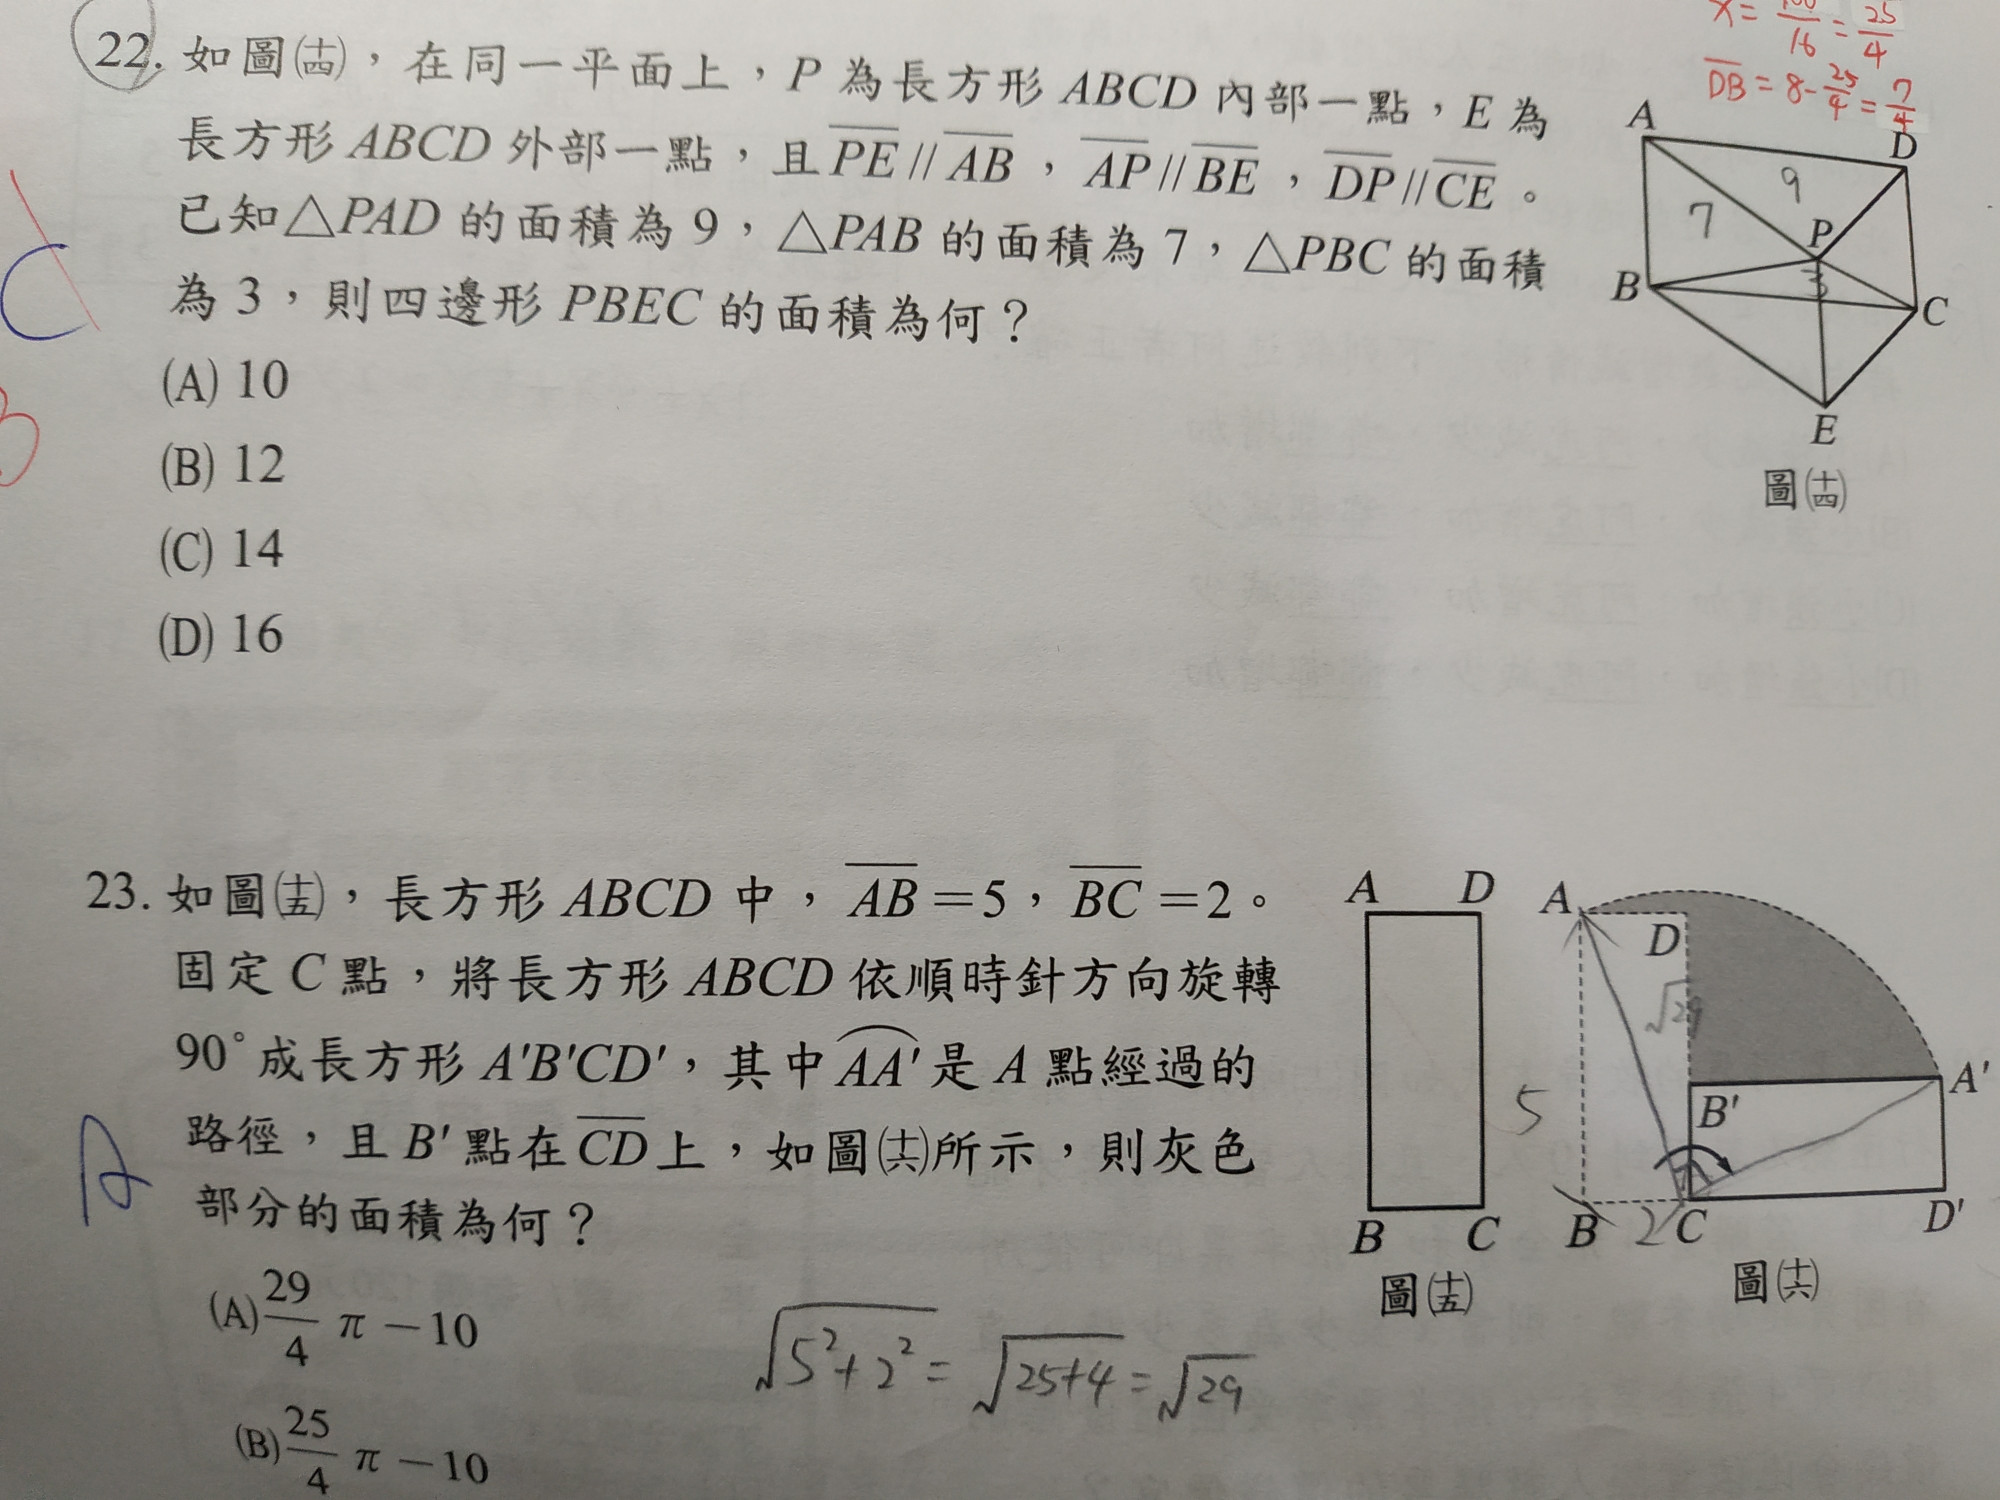 X = 100/16 = 25/4
DB = 8 - 25/4 = 7/4
22. 如圖㈩㈣,在同一平面上,P 為長方形 ABCD 內部一點,E 為
長方形 ABCD 外部一點,且 PE // AB , AP // BE , DP // CE 。
已知△PAD 的面積為 9,△PAB 的面積為 7,△PBC 的面積
為 3,則四邊形 PBEC 的面積為何?
(A) 10
(B) 12
(C) 14
(D) 16
C
B
A
D
9
7
P
3
B
C
E
圖(十四)
23. 如圖(十五),長方形 ABCD 中, AB =5, BC =2。
固定 C 點,將長方形 ABCD 依順時針方向旋轉
90°成長方形 A'B'CD',其中 AA' 是 A 點經過的
路徑,且 B' 點在 CD 上,如圖(十六)所示,則灰色
部分的面積為何?
A
(A) 29/4 π -10
(B) 25/4 π -10
√5²+2² = √25+4 = √29
A D
B C
圖(十五)
A
D
√29
5
B'
A'
B 2 C D'
圖(十六)